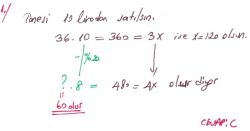 4/ Tanesi 10 liradan satılsın.
36.10 = 360 = 3x ise x=120 olsun.
-%20
?.8 = 480 = 4x olur diyor
60 olur
CEVAP: C